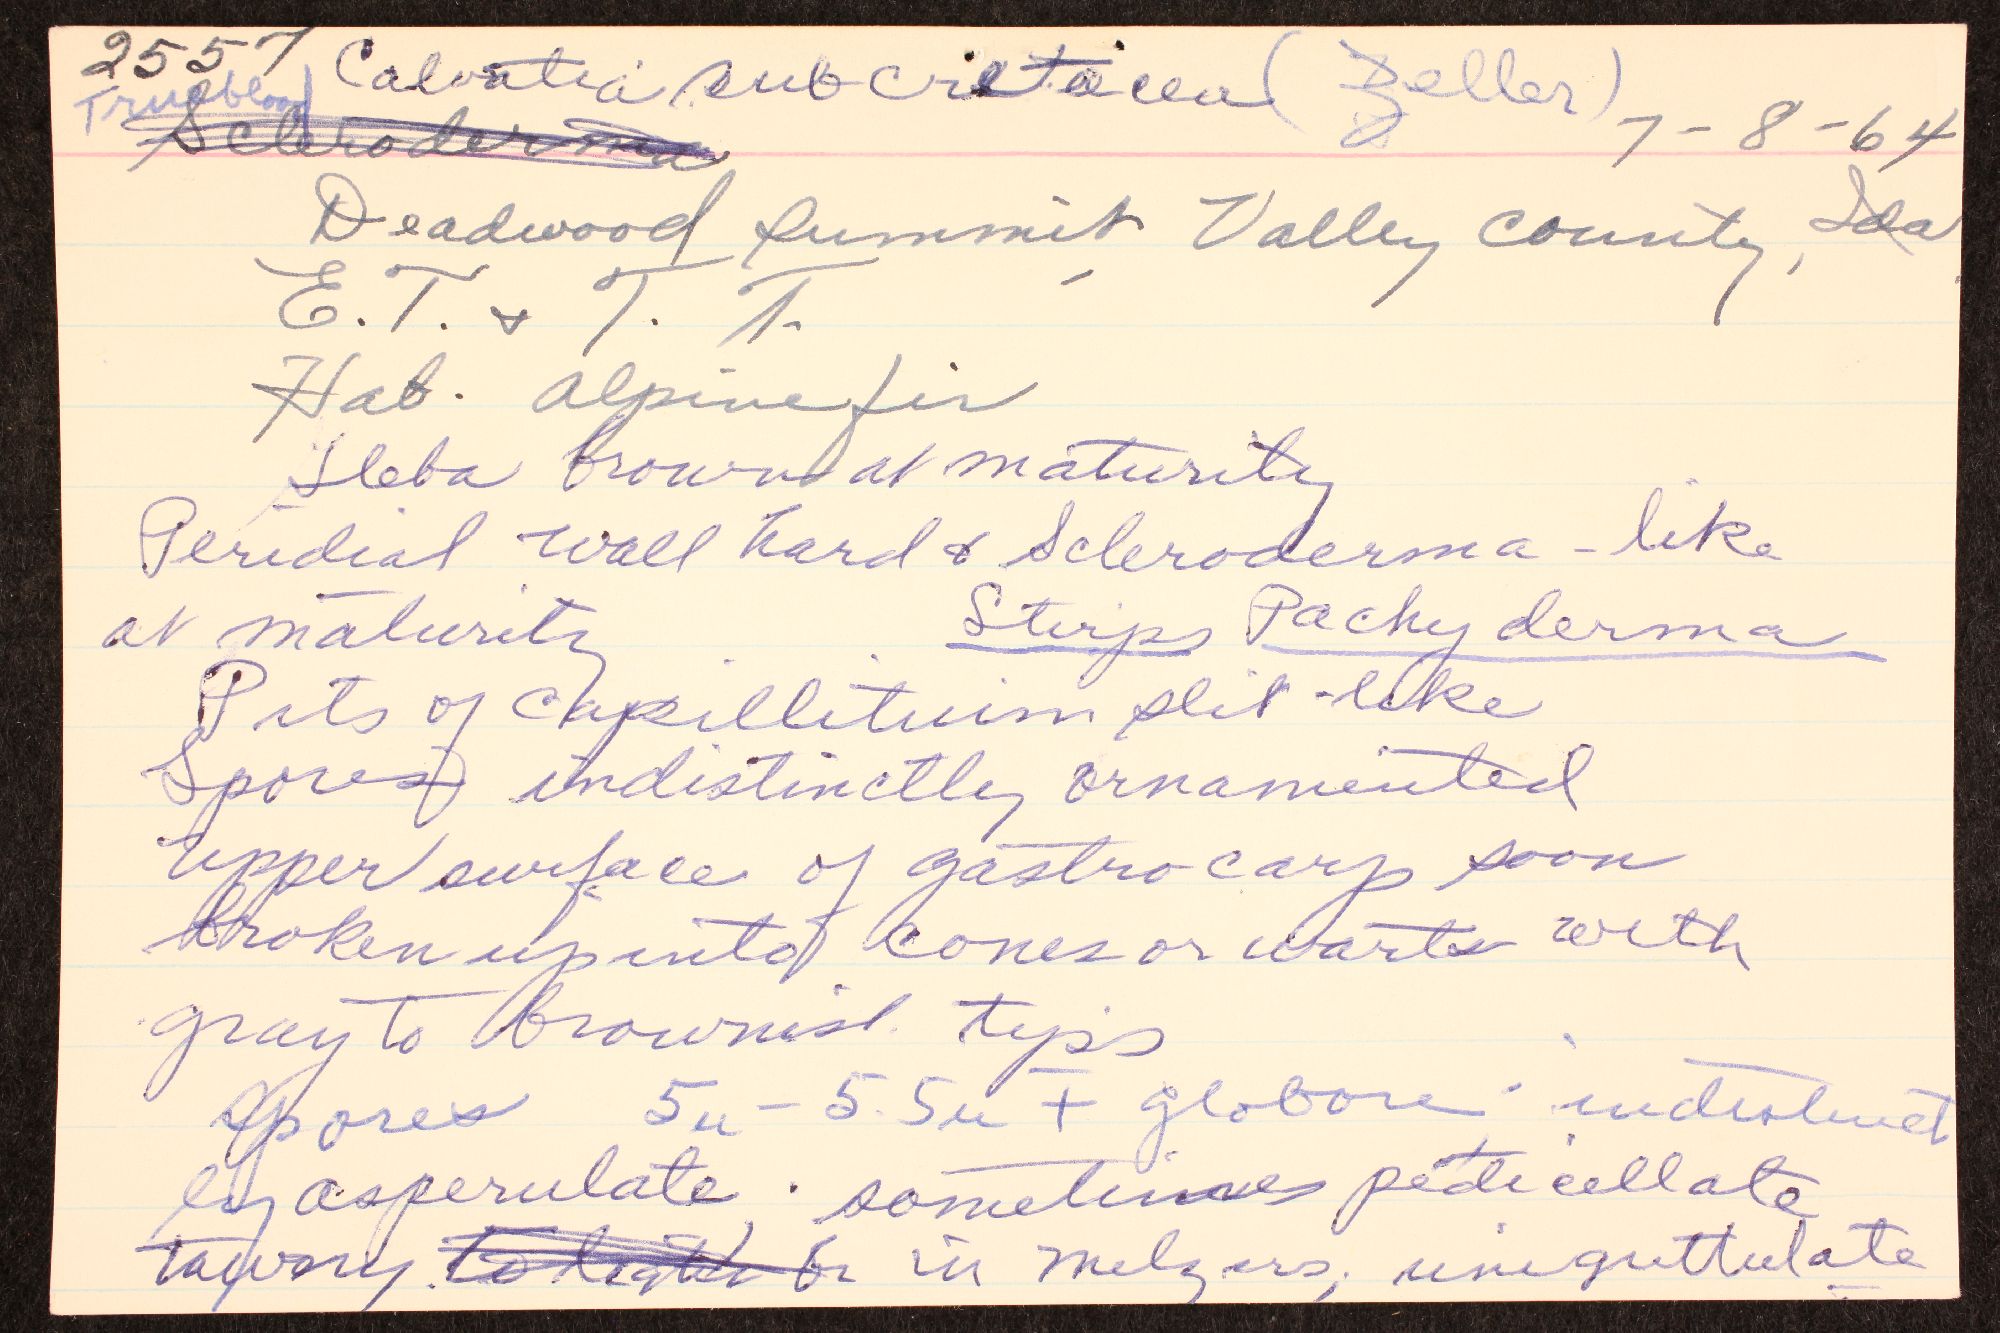 2557 Calvatia subcretacea (Zeller)
Trueblood
Scleroderma 7-8-64
Deadwood Summit, Valley County, Ida
E.T. & T.T.
Hab. Alpine fir
Gleba brown at maturity
Peridial wall hard & Scleroderma-like
at maturity Stirps Pachyderma
Pits of capillitium slit-like
Spores indistinctly ornamented
upper surface of gastrocarp soon
broken up into cones or warts with
gray to brownish tips
Spores 5u - 5.5u ± globose indistinct
ly asperulate, sometimes pedicellate
tawny br in melzers, uniguttulate